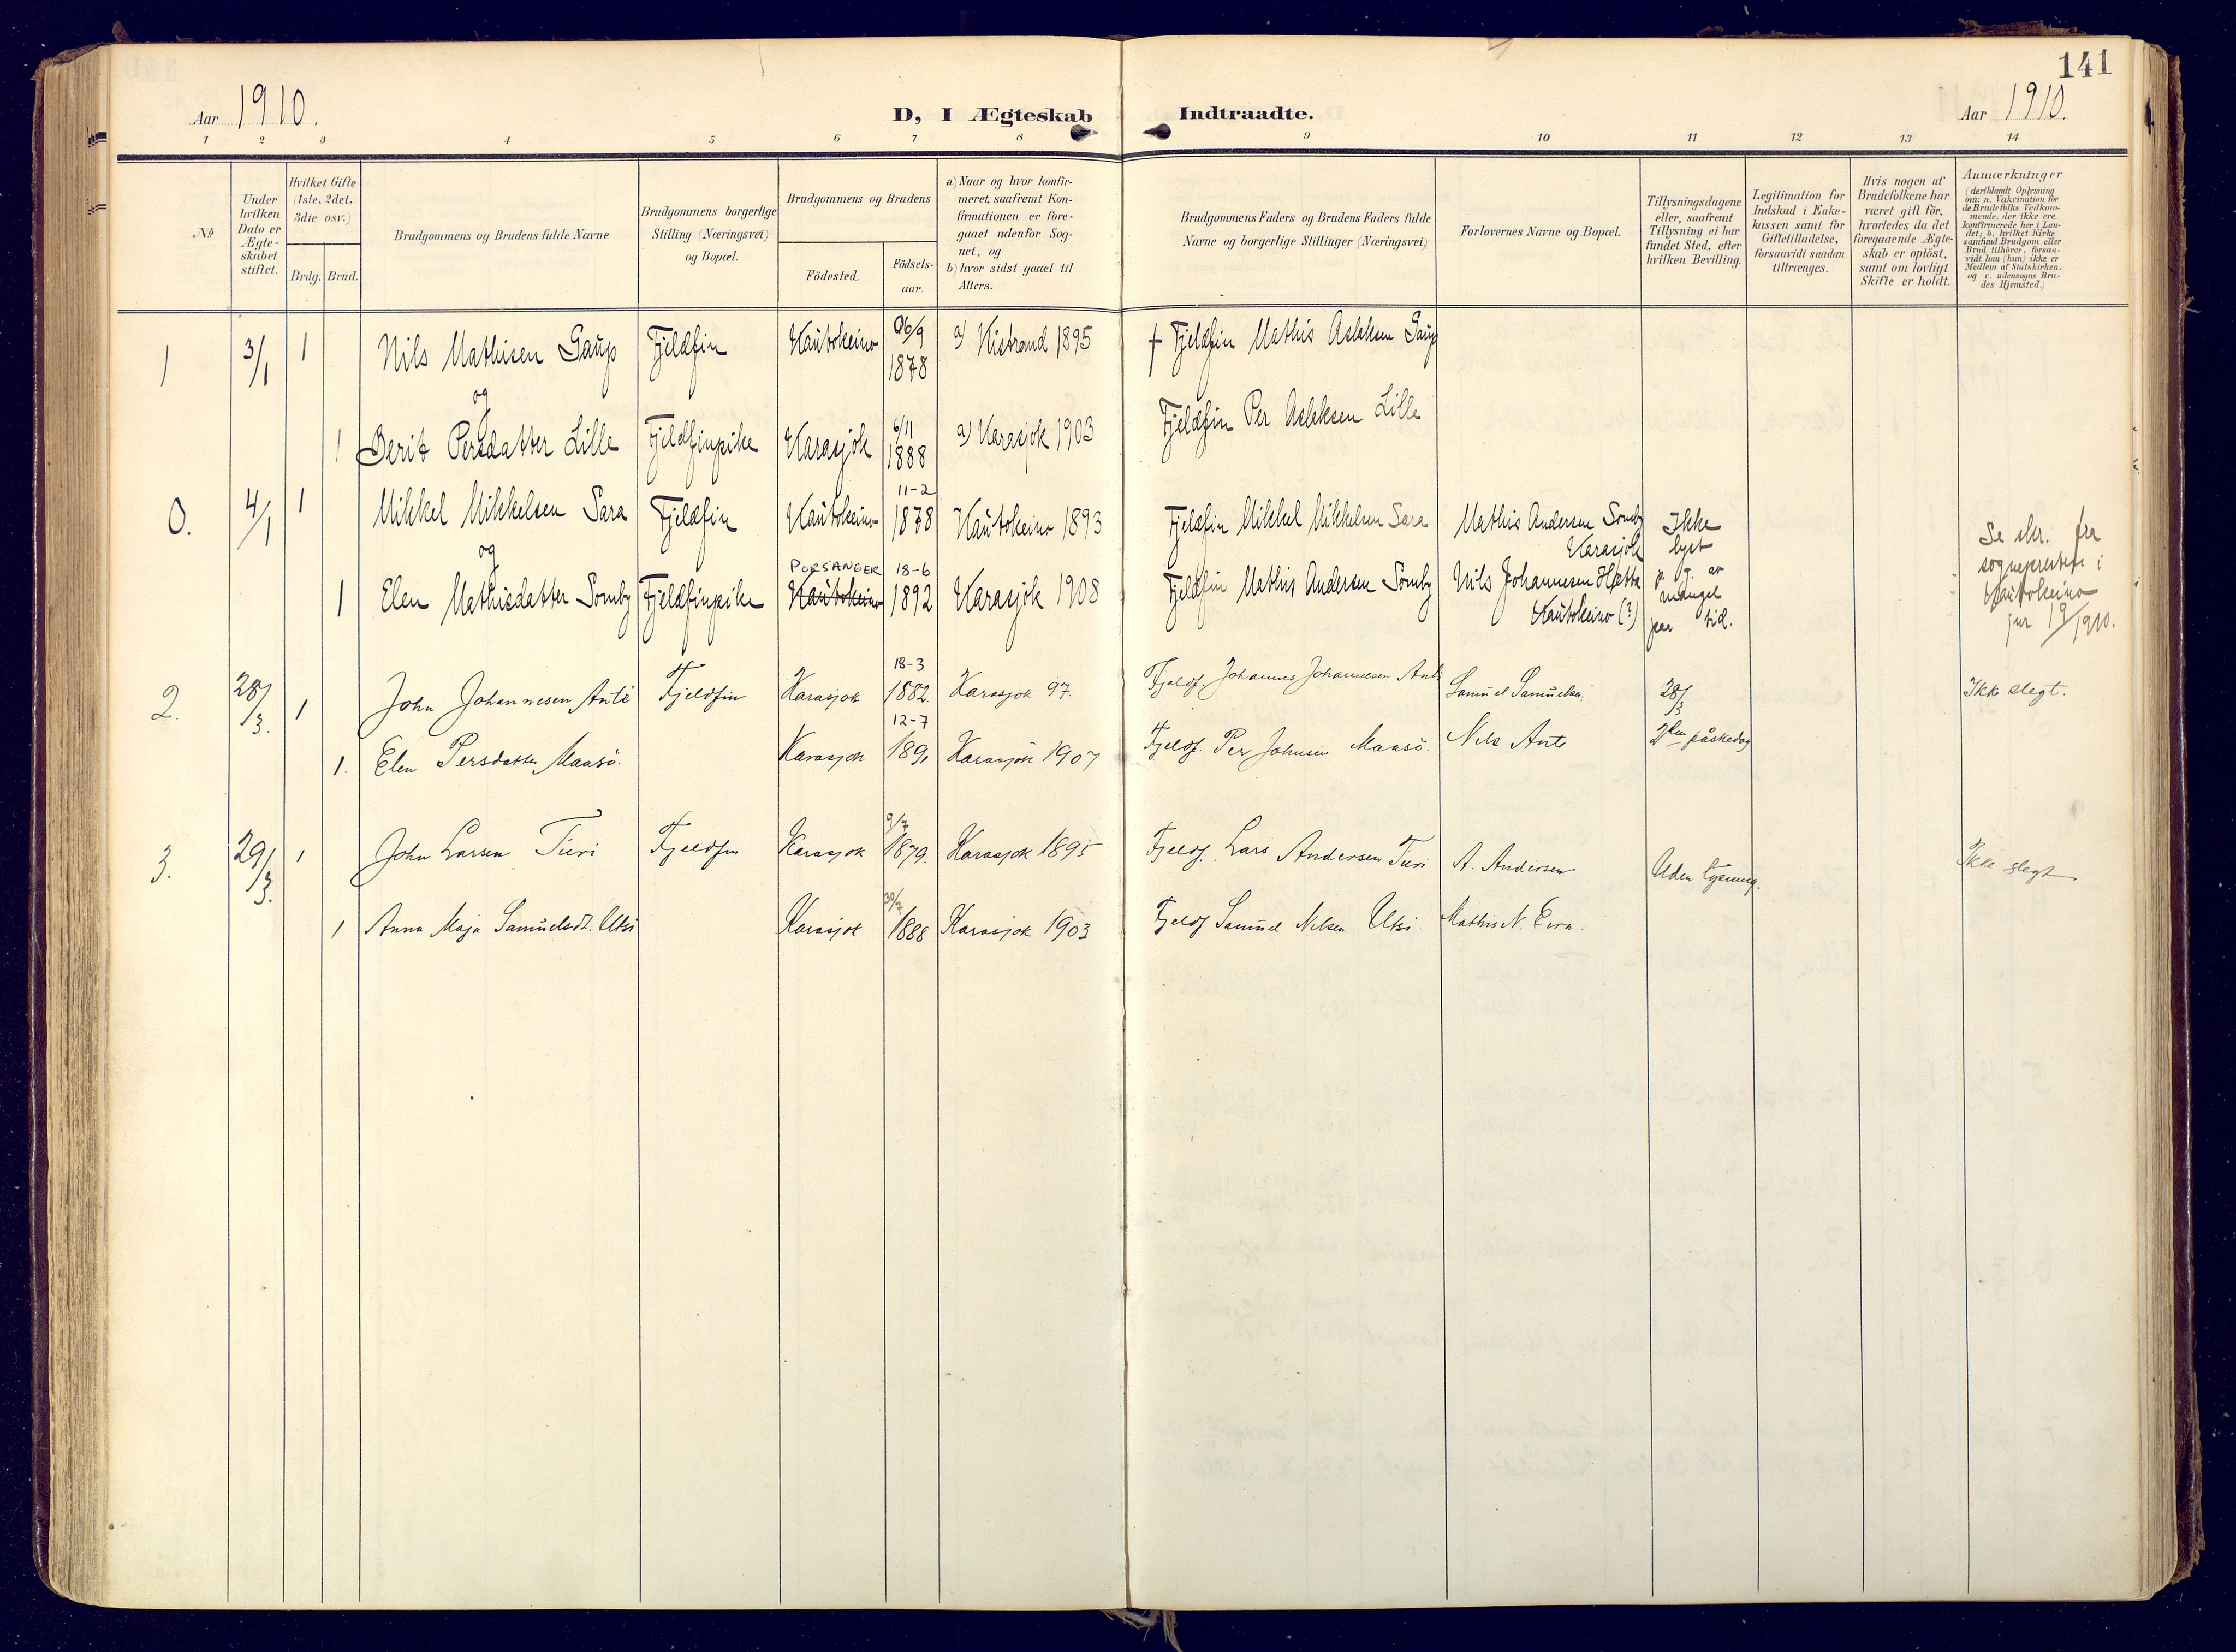 141
Aar 1910.
D, I Ægteskab Indtraadte.
Aar 1910.
1 2 3 4 5 6 7 8 9 10 11 12 13 14
No
Under hvilken Dato er Ægte-skabet stiftet.
Hvilket Gifte (1ste, 2det, 3die osv.)
Brdg. Brud.
Brudgommens og Brudens fulde Navne
Brudgommens borgerlige Stilling (Næringsvei) og Bopæl.
Brudgommens og Brudens
Födested. Födsels-aar.
a) Naar og hvor konfir-
meret, saafremt Kon-
firmationen er fore-
gaaet udenfor Sog-
net, og
b) hvor sidst gaaet til
Alters.
Brudgommens Faders og Brudens Faders fulde
Navne og borgerlige Stillinger (Næringsvei)
Forlovernes Navne og Bopæl.
Tillysningsdagene
eller, saafremt
Tillysning ei har
fundet Sted, efter
hvilken Bevilling.
Legitimation for
Indskud i Enke-
kassen samt for
Giftetilladelse,
forsaavidt saadan
tiltrænges.
Hvis nogen af
Brudefolkene har
været gift för,
hvorledes da det
foregaaende Ægte-
skab er oplöst,
samt om lovligt
Skifte er holdt.
Anmærkninger
(deriblandt Oplysning
om: a. Vakcination for
de Brudefolks Vedkom-
mende, der ikke ere
konfirmerede her i Lan-
det; b. hvilket Kirke
samfund Brudgom eller
Brud tilhörer, forsaa-
vidt han (hun) ikke er
Medlem af Statskirken.
og c. udensogns Bru-
des Hjemsted.)
1 3/1 1 Nils Mathisen Gaup Fjeldfin Kautokeino 26/9 1878 a) Kistrand 1895 † Fjeldfin Mathis Aslaksen Gaup
og
1 Berit Persdatter Lille Fjeldfinpike Karasjok 6/11 1888 a) Karasjok 1903 Fjeldfin Per Aslaksen Lille
0. 4/1 1 Mikkel Mikkelsen Sara Fjeldfin Kautokeino 11-2 1878 Kautokeino 1893 Fjeldfin Mikkel Mikkelsen Sara Mathis Andersen Somby Karasjok Ikke lyst p. g. av mangel paa tid. Se skr. fra sognepresten i Kautokeino
og
1 Elen Mathisdatter Somby Fjeldfinpike PORSANGER Kautokeino 18-6 1892 Karasjok 1908 Fjeldfin Mathis Andersen Somby Nils Johannesen Hætta Kautokeino (?)
2. 28/3. 1 John Johannesen Anti Fjeldfin Karasjok 18-3 1882. Karasjok 97. Fjeldf. Johannes Johannesen Anti Samuel Samuelsen. 28/3 2den påskedag Ikke slegt.
1. Elen Persdatter Maasö. Karasjok 12-7 1891 Karasjok 1907 Fjeldf. Per Johnsen Maasö. Nils Anti
3. 29/3. 1 John Larsen Turi Fjeldfin Karasjok 9/7 1879. Karasjok 1895 Fjeldf. Lars Andersen Turi A. Andersen Uden lysning. Ikke slegt
1 Anna Maja Samuelsdt. Utsi Karasjok 30/7 1888 Karasjok 1903 Fjeldf Samuel Nilsen Utsi. Mathis N. Eira.